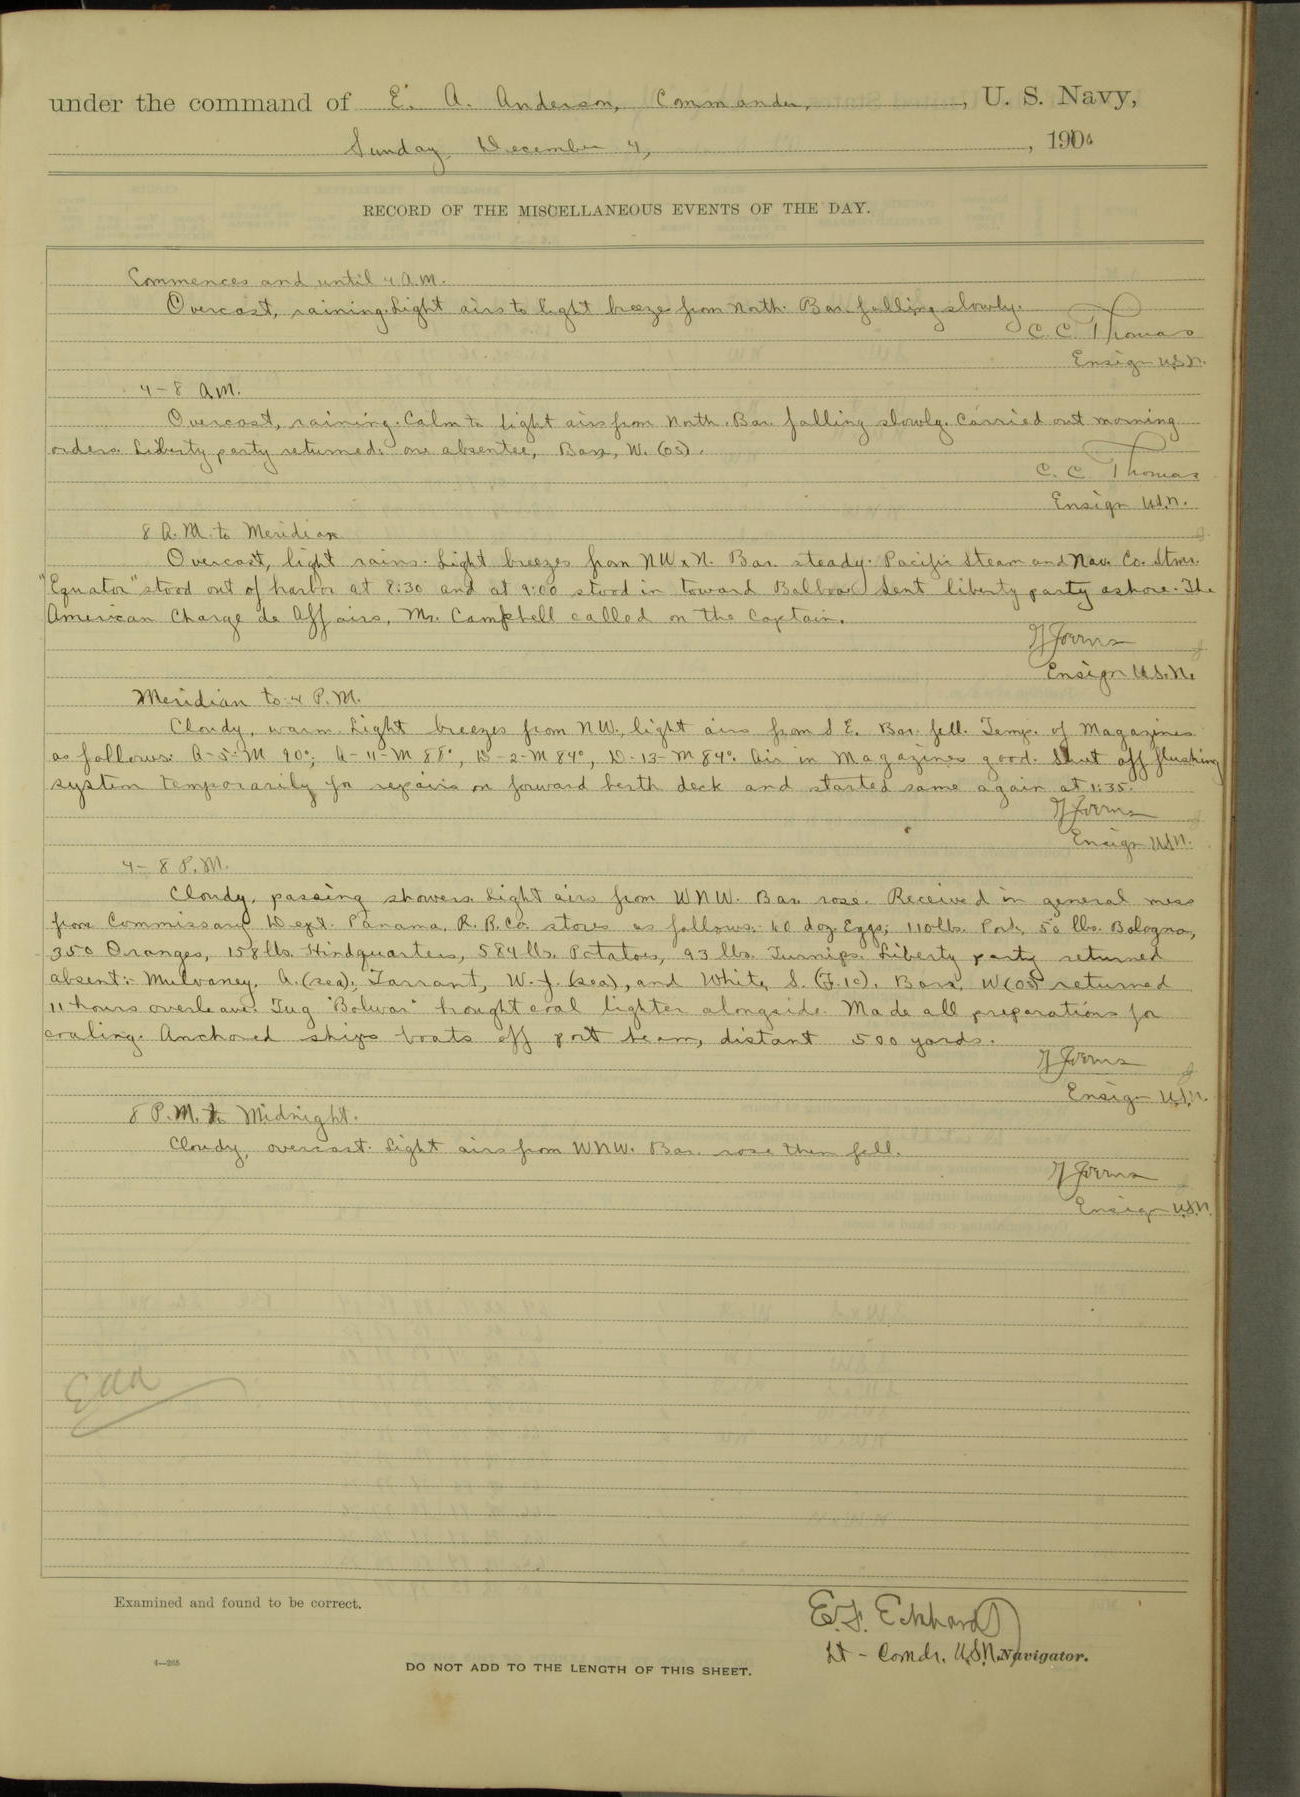 under the command of E. A. Anderson, Commander, , U. S. Navy,
Sunday, December 4, , 190
RECORD OF THE MISCELLANEOUS EVENTS OF THE DAY.
Commences and until 4 A.M.
Overcast, raining. Light airs to light breeze from North. Bar. falling slowly.
C. C. Thomas
Ensign U.S.N.
4-8 A.M.
Overcast, raining. Calm to light airs from North. Bar. falling slowly. Carried out morning
orders. Liberty party returned: one absentee, Barr, W. (OS).
C. C. Thomas
Ensign U.S.N.
8 A.M. to Meridian
Overcast, light rains. Light breezes from NWxN. Bar. steady. Pacific Steam and Nav. Co. Stmr.
"Equator" stood out of harbor at 8:30 and at 9:00 stood in toward Balboa. Sent liberty party ashore. The
American Charge de Affairs, Mr. Campbell called on the Captain.
Ensign U.S.N.
Meridian to 4 P.M.
Cloudy, warm. Light breezes from NW., light airs from S.E. Bar. fell. Temp. of Magazines
as follows: A-5-M 90°; A-11-M 88°, D-2-M 84°, D-13-M 84°. Air in Magazines good. Shut off flushing
system temporarily for repairs on forward berth deck and started same again at 1:35.
Ensign U.S.N.
4-8 P.M.
Cloudy, passing showers. Light airs from WNW. Bar. rose. Received in general mess
from Commissary Dept. Panama, R.R. Co. stores as follows: 60 doz. Eggs; 110 lbs. Pork, 50 lbs. Bologna,
350 Oranges, 158 lbs. Hindquarters, 584 lbs. Potatoes, 93 lbs. Turnips. Liberty party returned
absent: Mulvaney, A. (sea), Tarrant, W. J. (sea), and White, S. (F.1c). Barr, W (OS) returned
11 hours overleave. Tug "Bolivar" brought coal lighter alongside. Made all preparations for
coaling. Anchored ships boats off port beam, distant 500 yards.
Ensign U.S.N.
8 P.M. to Midnight.
Cloudy, overcast. Light airs from WNW. Bar. rose then fell.
Ensign U.S.N.
Examined and found to be correct.
E. F. Eckhardt
Lt-Comdr. U.S.N. Navigator.
4—265
DO NOT ADD TO THE LENGTH OF THIS SHEET.